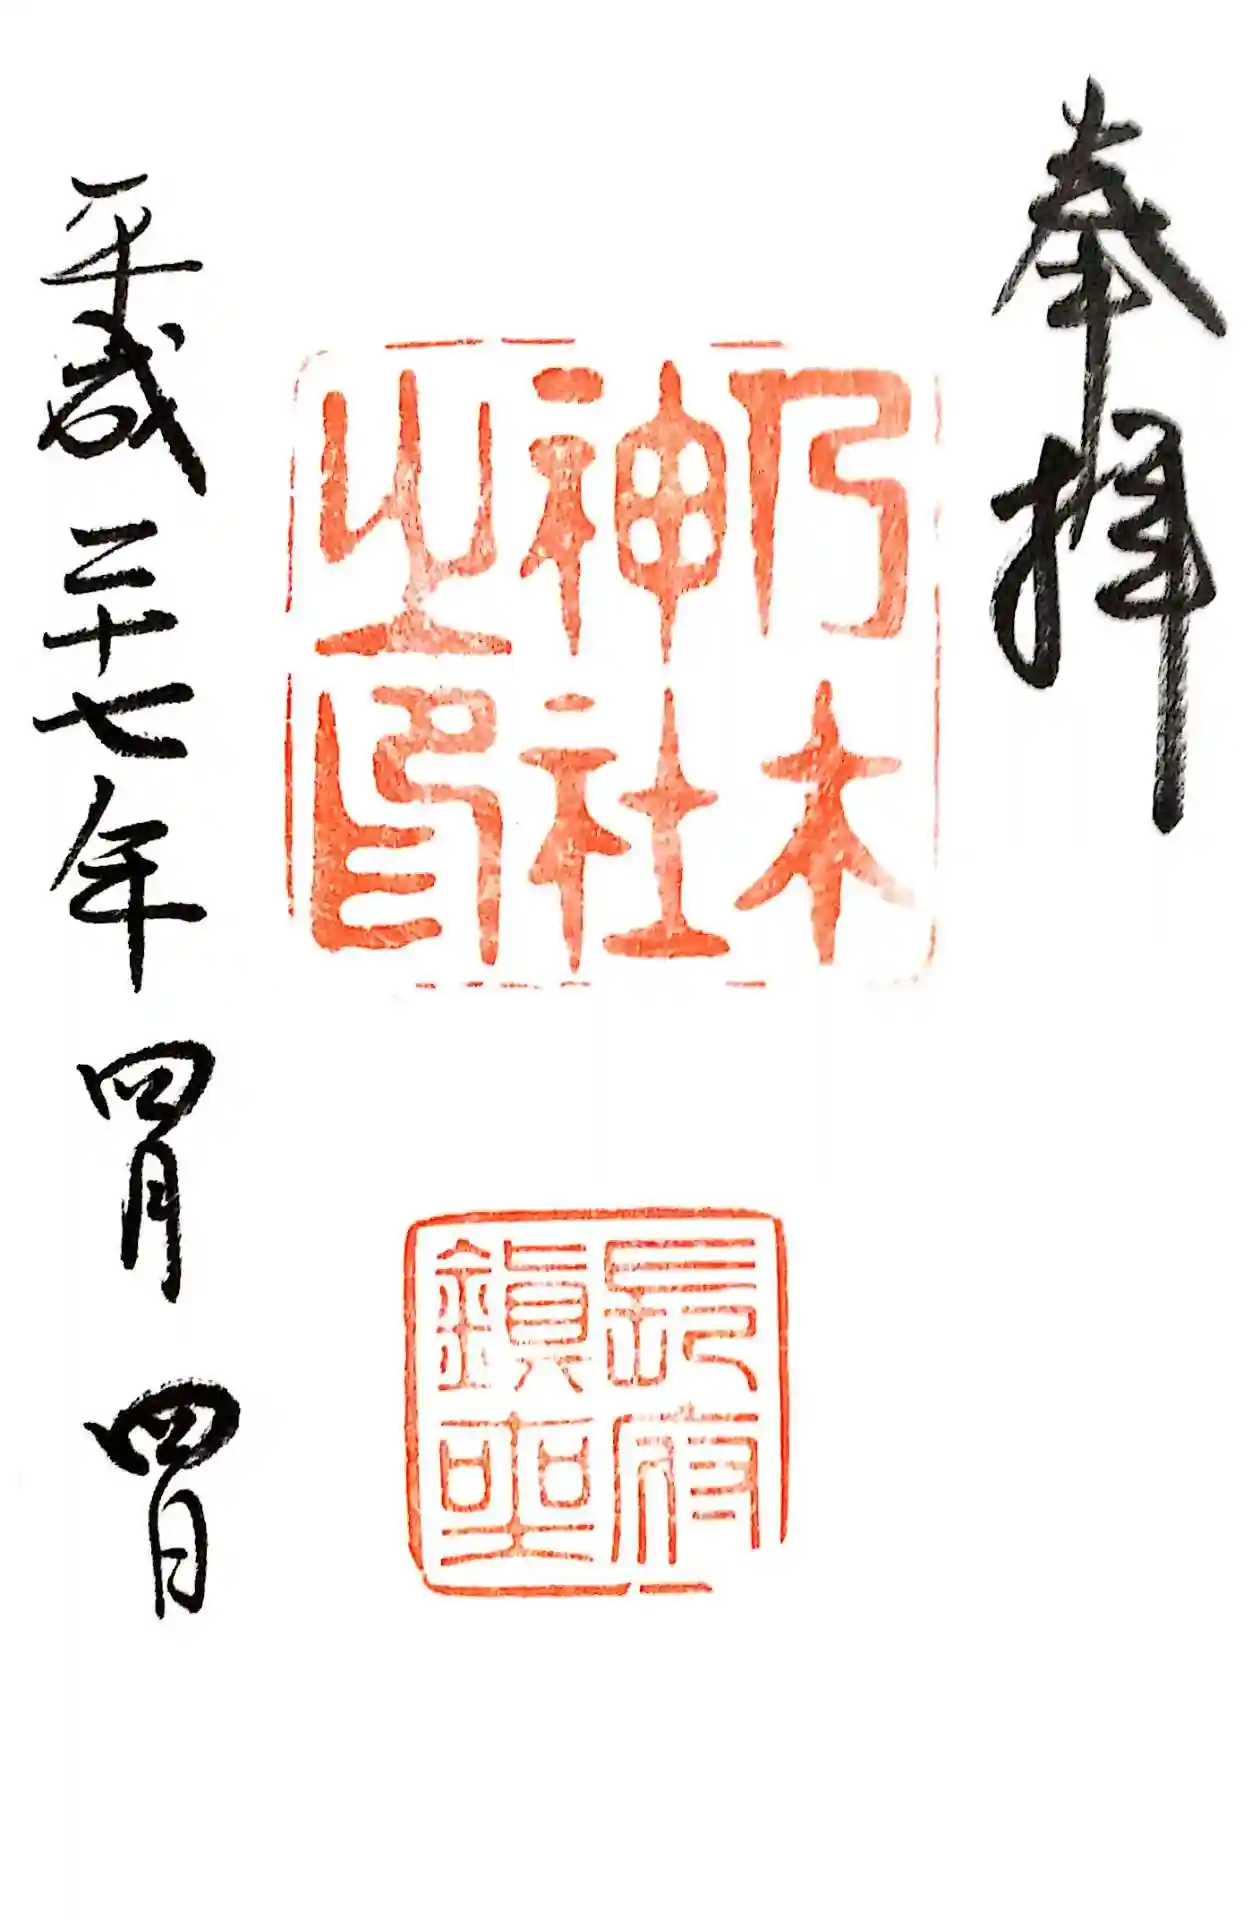 奉拝
乃木
神社
之印
長府
鎮座
平成二十七年四月四日